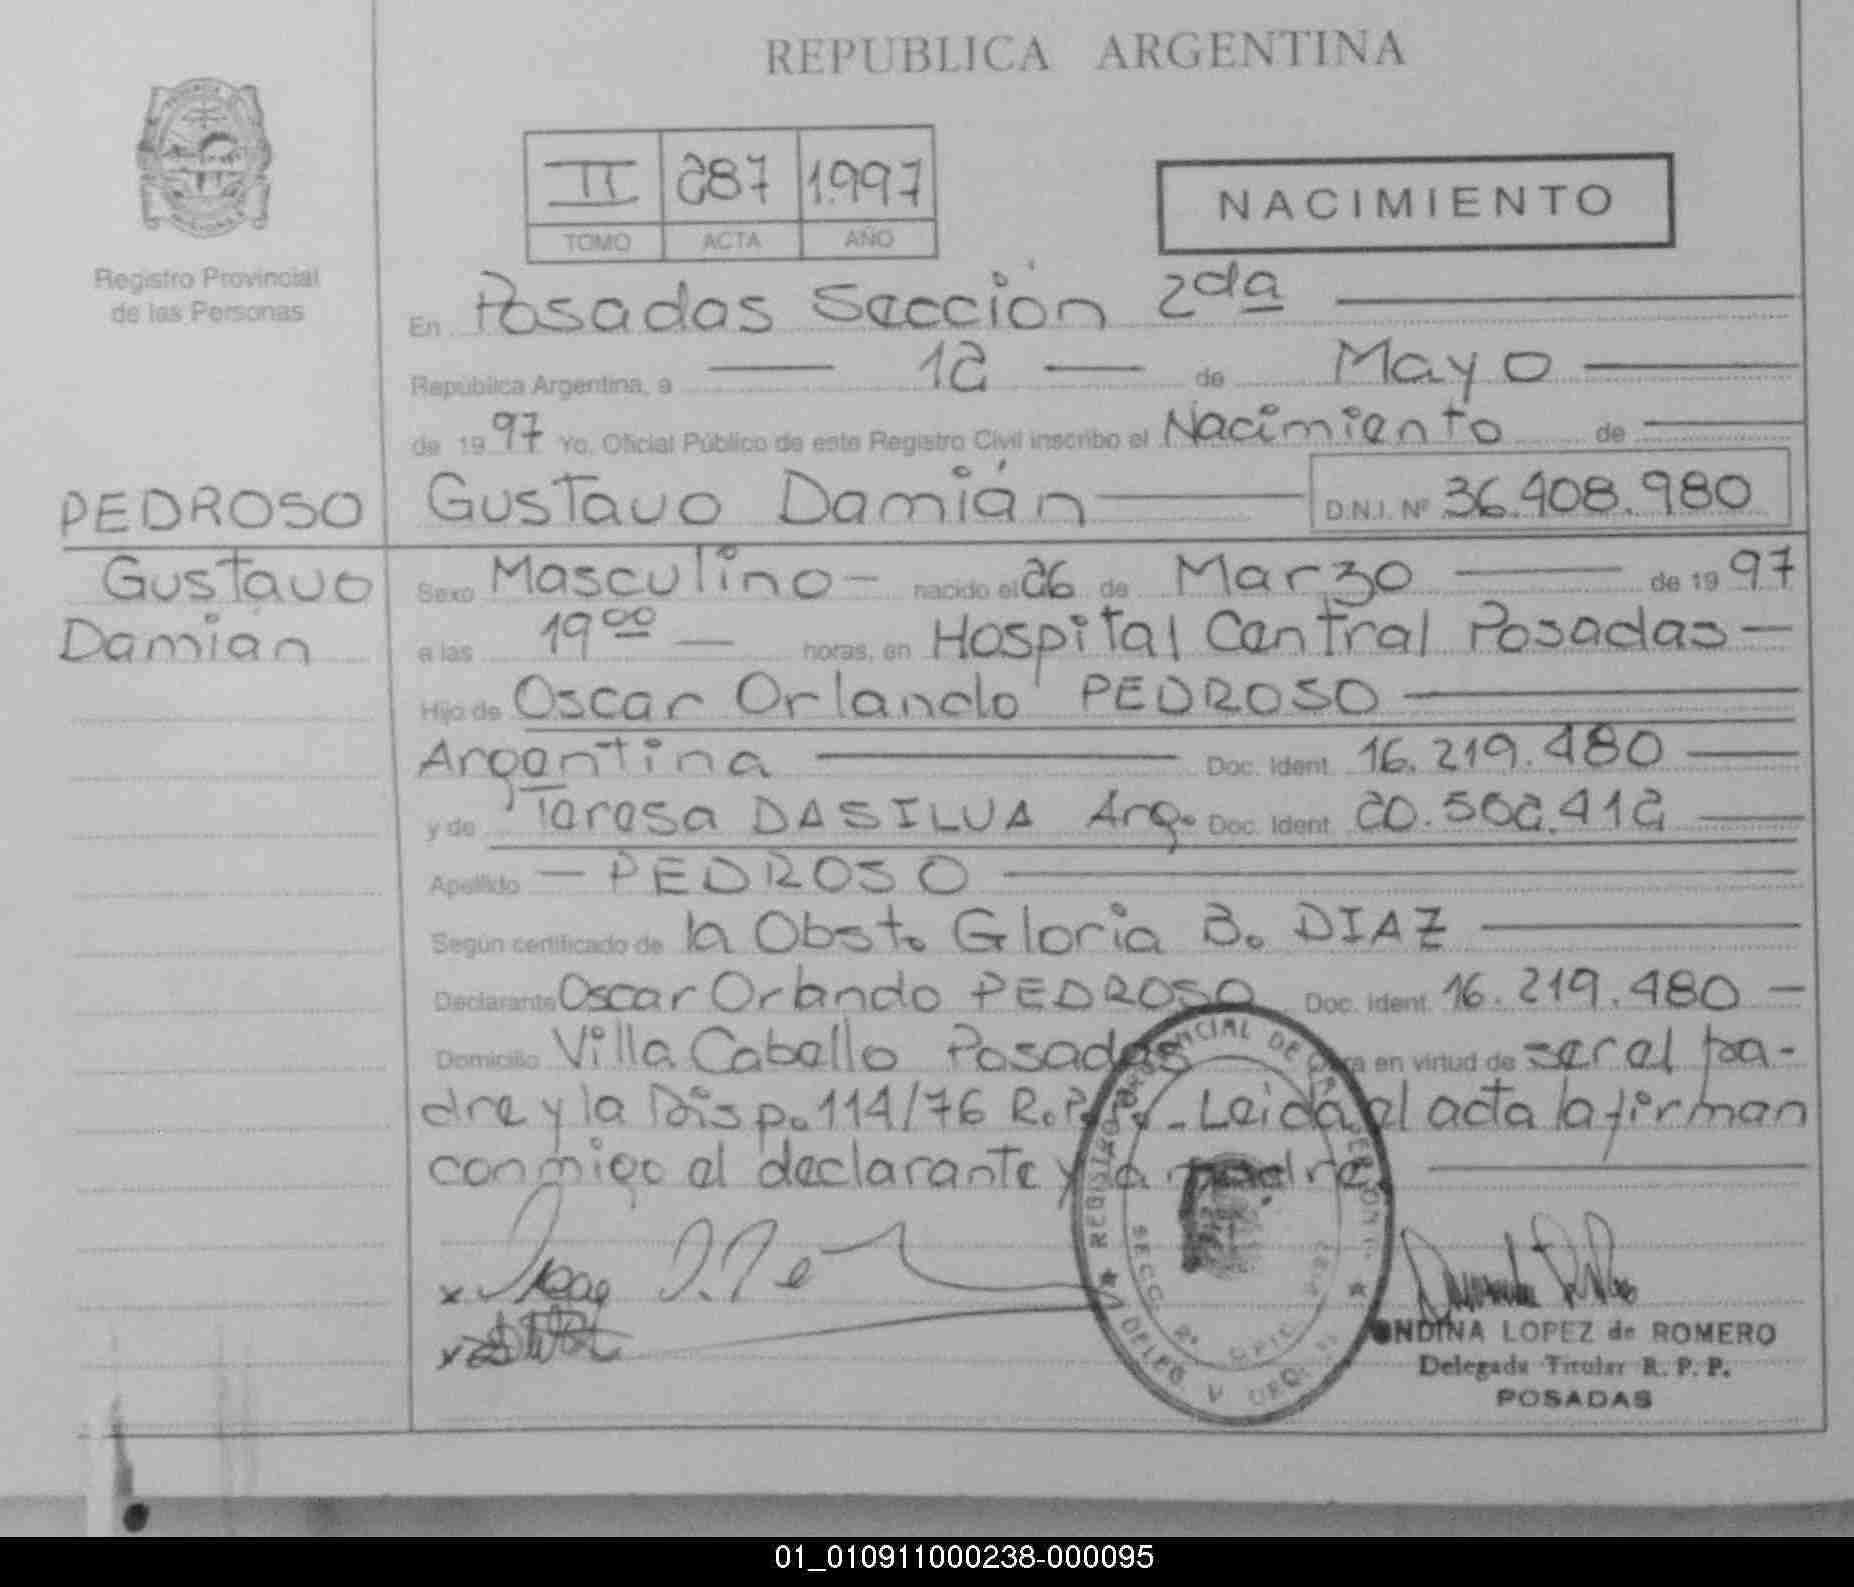 REPUBLICA ARGENTINA
II 287 1.997
TOMO ACTA AÑO
NACIMIENTO
Registro Provincial
de las Personas
En Posadas Sección 2da
República Argentina, a 12 de Mayo
de 19 97 Yo, Oficial Público de este Registro Civil inscribo el Nacimiento de
PEDROSO
Gustavo
Damián
Gustavo Damián D.N.I. Nº 36.408.980
Sexo Masculino - nacido el 26 de Marzo de 19 97
a las 19 00 horas, en Hospital Central Posadas -
Hijo de Oscar Orlando PEDROSO
Argentina Doc. Ident. 16.219.480
y de Teresa DASILVA Arg. Doc. Ident. 20.502.412
Apellido - PEDROSO
Según certificado de la Obst. Gloria B. DIAZ
Declarante Oscar Orlando PEDROSO Doc. Ident. 16.219.480 -
Domicilio Villa Cabello Posadas Obra en virtud de ser el pa-
dre y la Disp. 114/76 R.P.P. - Leida el acta la firman
conmigo el declarante y la madre.
REGISTRO PROVINCIAL DE LAS PERSONAS
SECC. 2ª
ONDINA LOPEZ de ROMERO
Delegada Titular R. P. P.
POSADAS
01_010911000238-000095